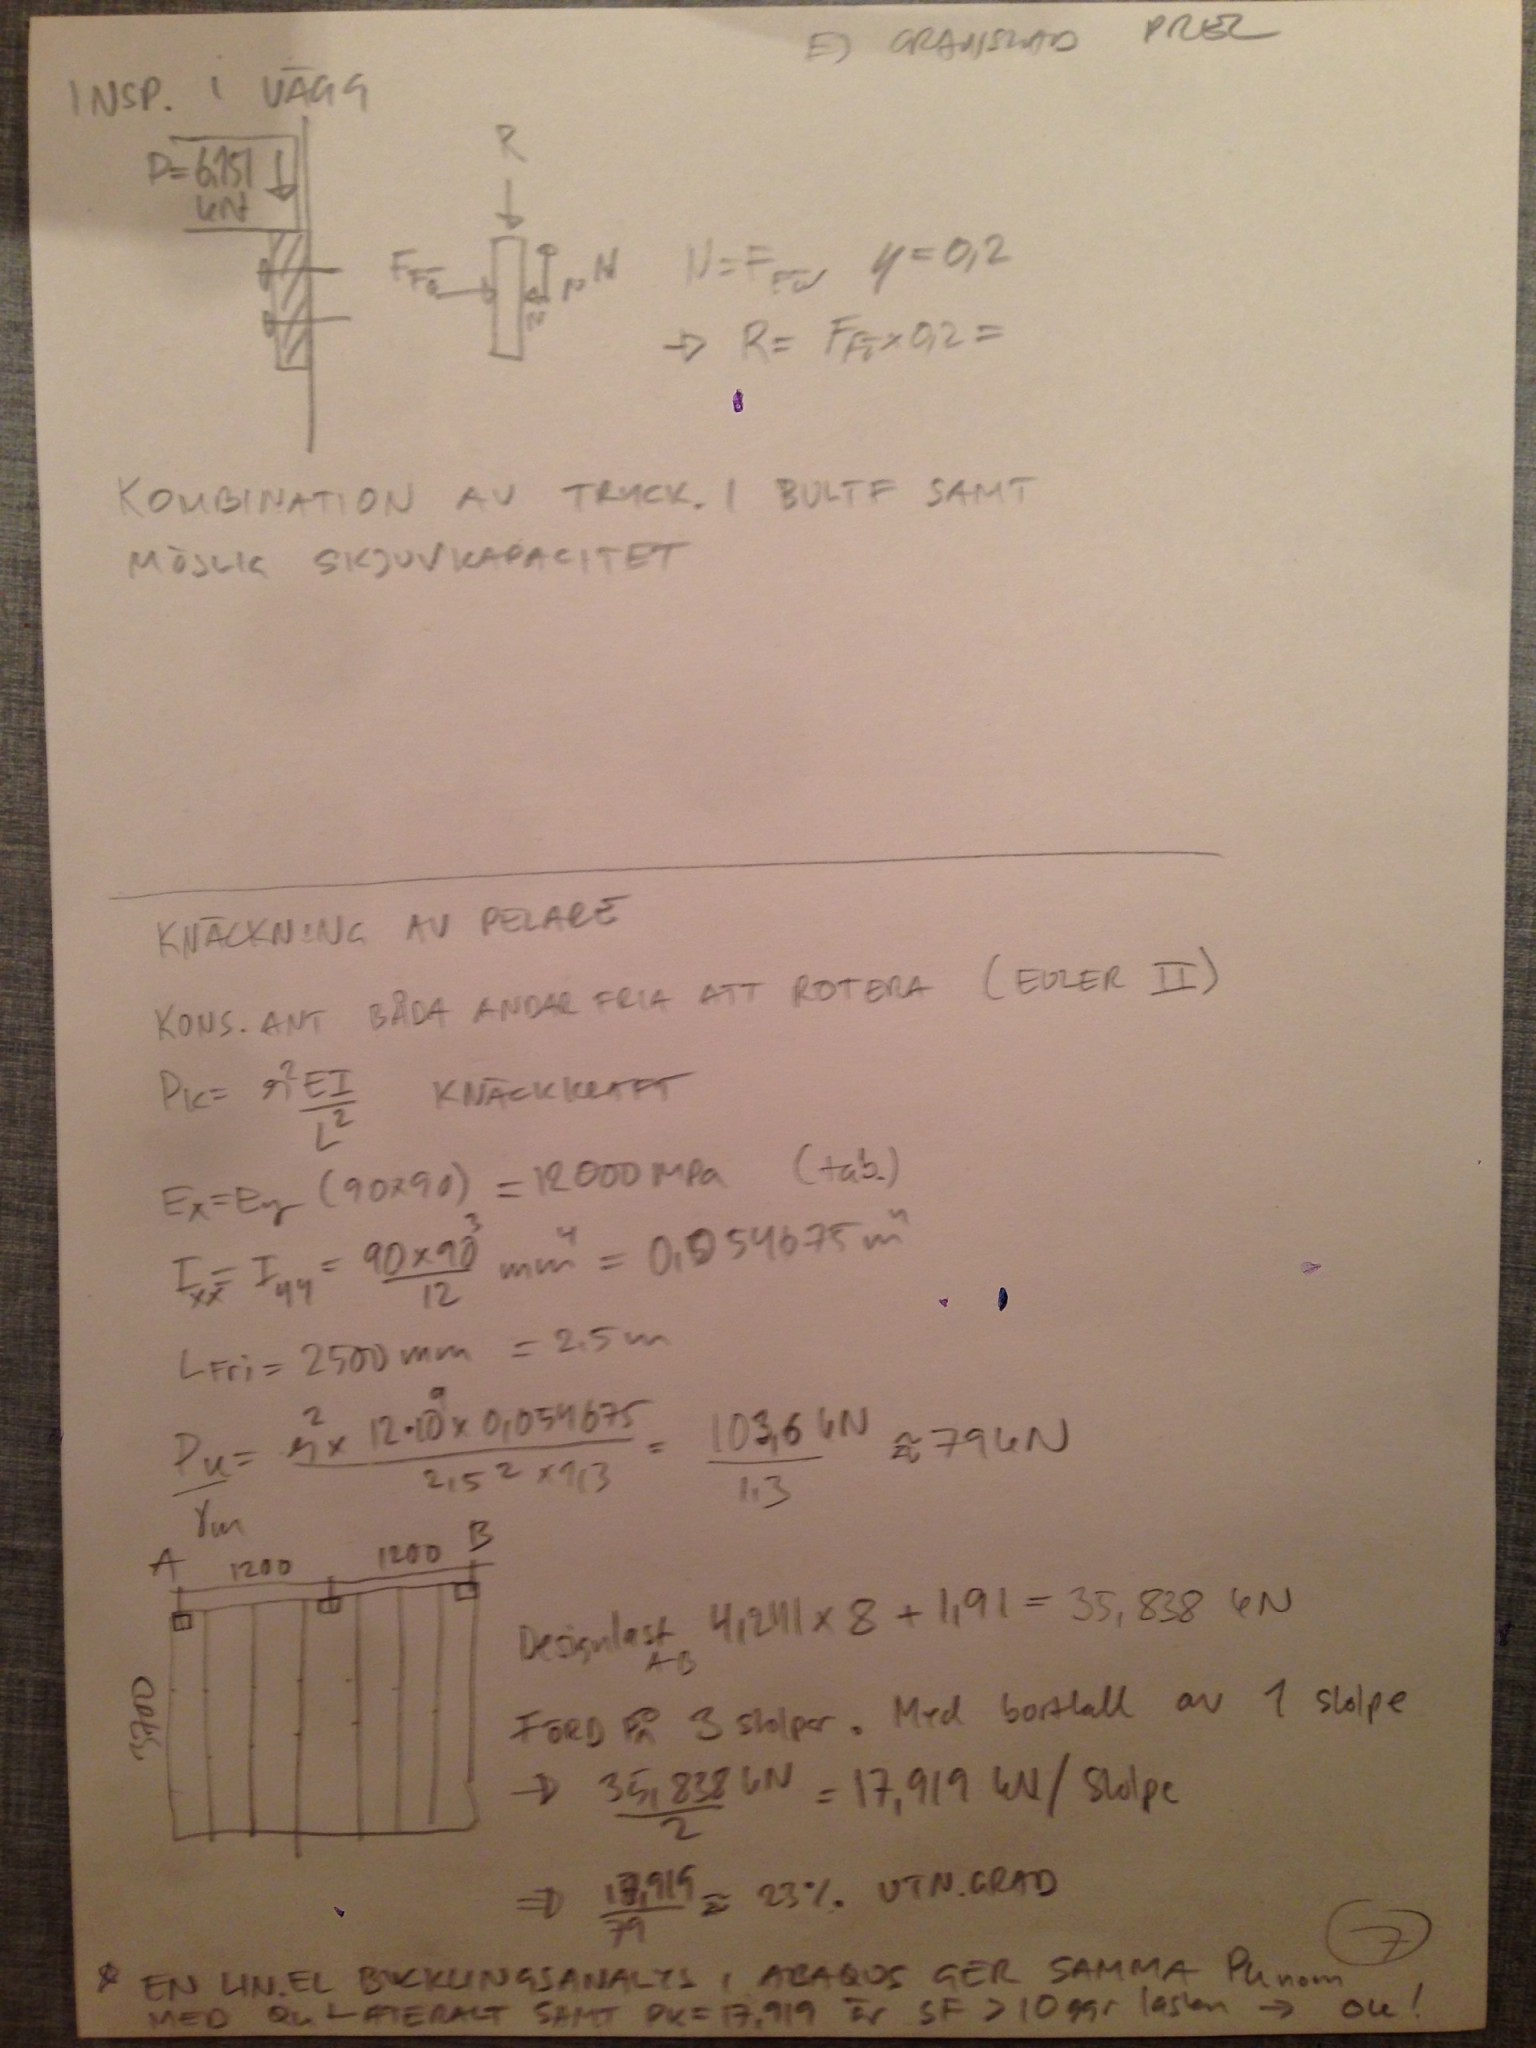 EJ GRANSKAD PREL
INSP. I VÄGG
P=6,151
kN
R
F
N
μN
N=F μ=0,2
→ R= F ×0,2=
KOMBINATION AV TRYCK. I BULTF SAMT
MÖJLIG SKJUVKAPACITET
KNÄCKNING AV PELARE
KONS. ANT BÅDA ÄNDAR FRIA ATT ROTERA (EULER II)
PK= π²EI KNÄCKKRAFT
L²
Ex=Ey (90×90) = 12000 MPa (tab.)
Ixx= Iyy= 90×90³ mm⁴ = 0,054675 m⁴
12
LFri= 2500 mm = 2.5m
Pk= π²× 12·10⁹× 0,054675 = 103,6 kN ≈ 79 kN
γm 2,5² ×1,3 1.3
A 1200 1200 B
Designlast A-B 4,241×8 + 1,91 = 35,838 kN
FÖRD PÅ 3 stolpar. Med bortfall av 1 stolpe
→ 35,838 kN = 17,919 kN/ Stolpe
2
⇒ 17,919 ≈ 23%. UTN.GRAD
79
7
* EN LIN.EL BUCKLINGSANALYS I ABAQUS GER SAMMA Pknom
MED LATERALT SAMT PK=17,919 är SF >10ggr lasten → ok!